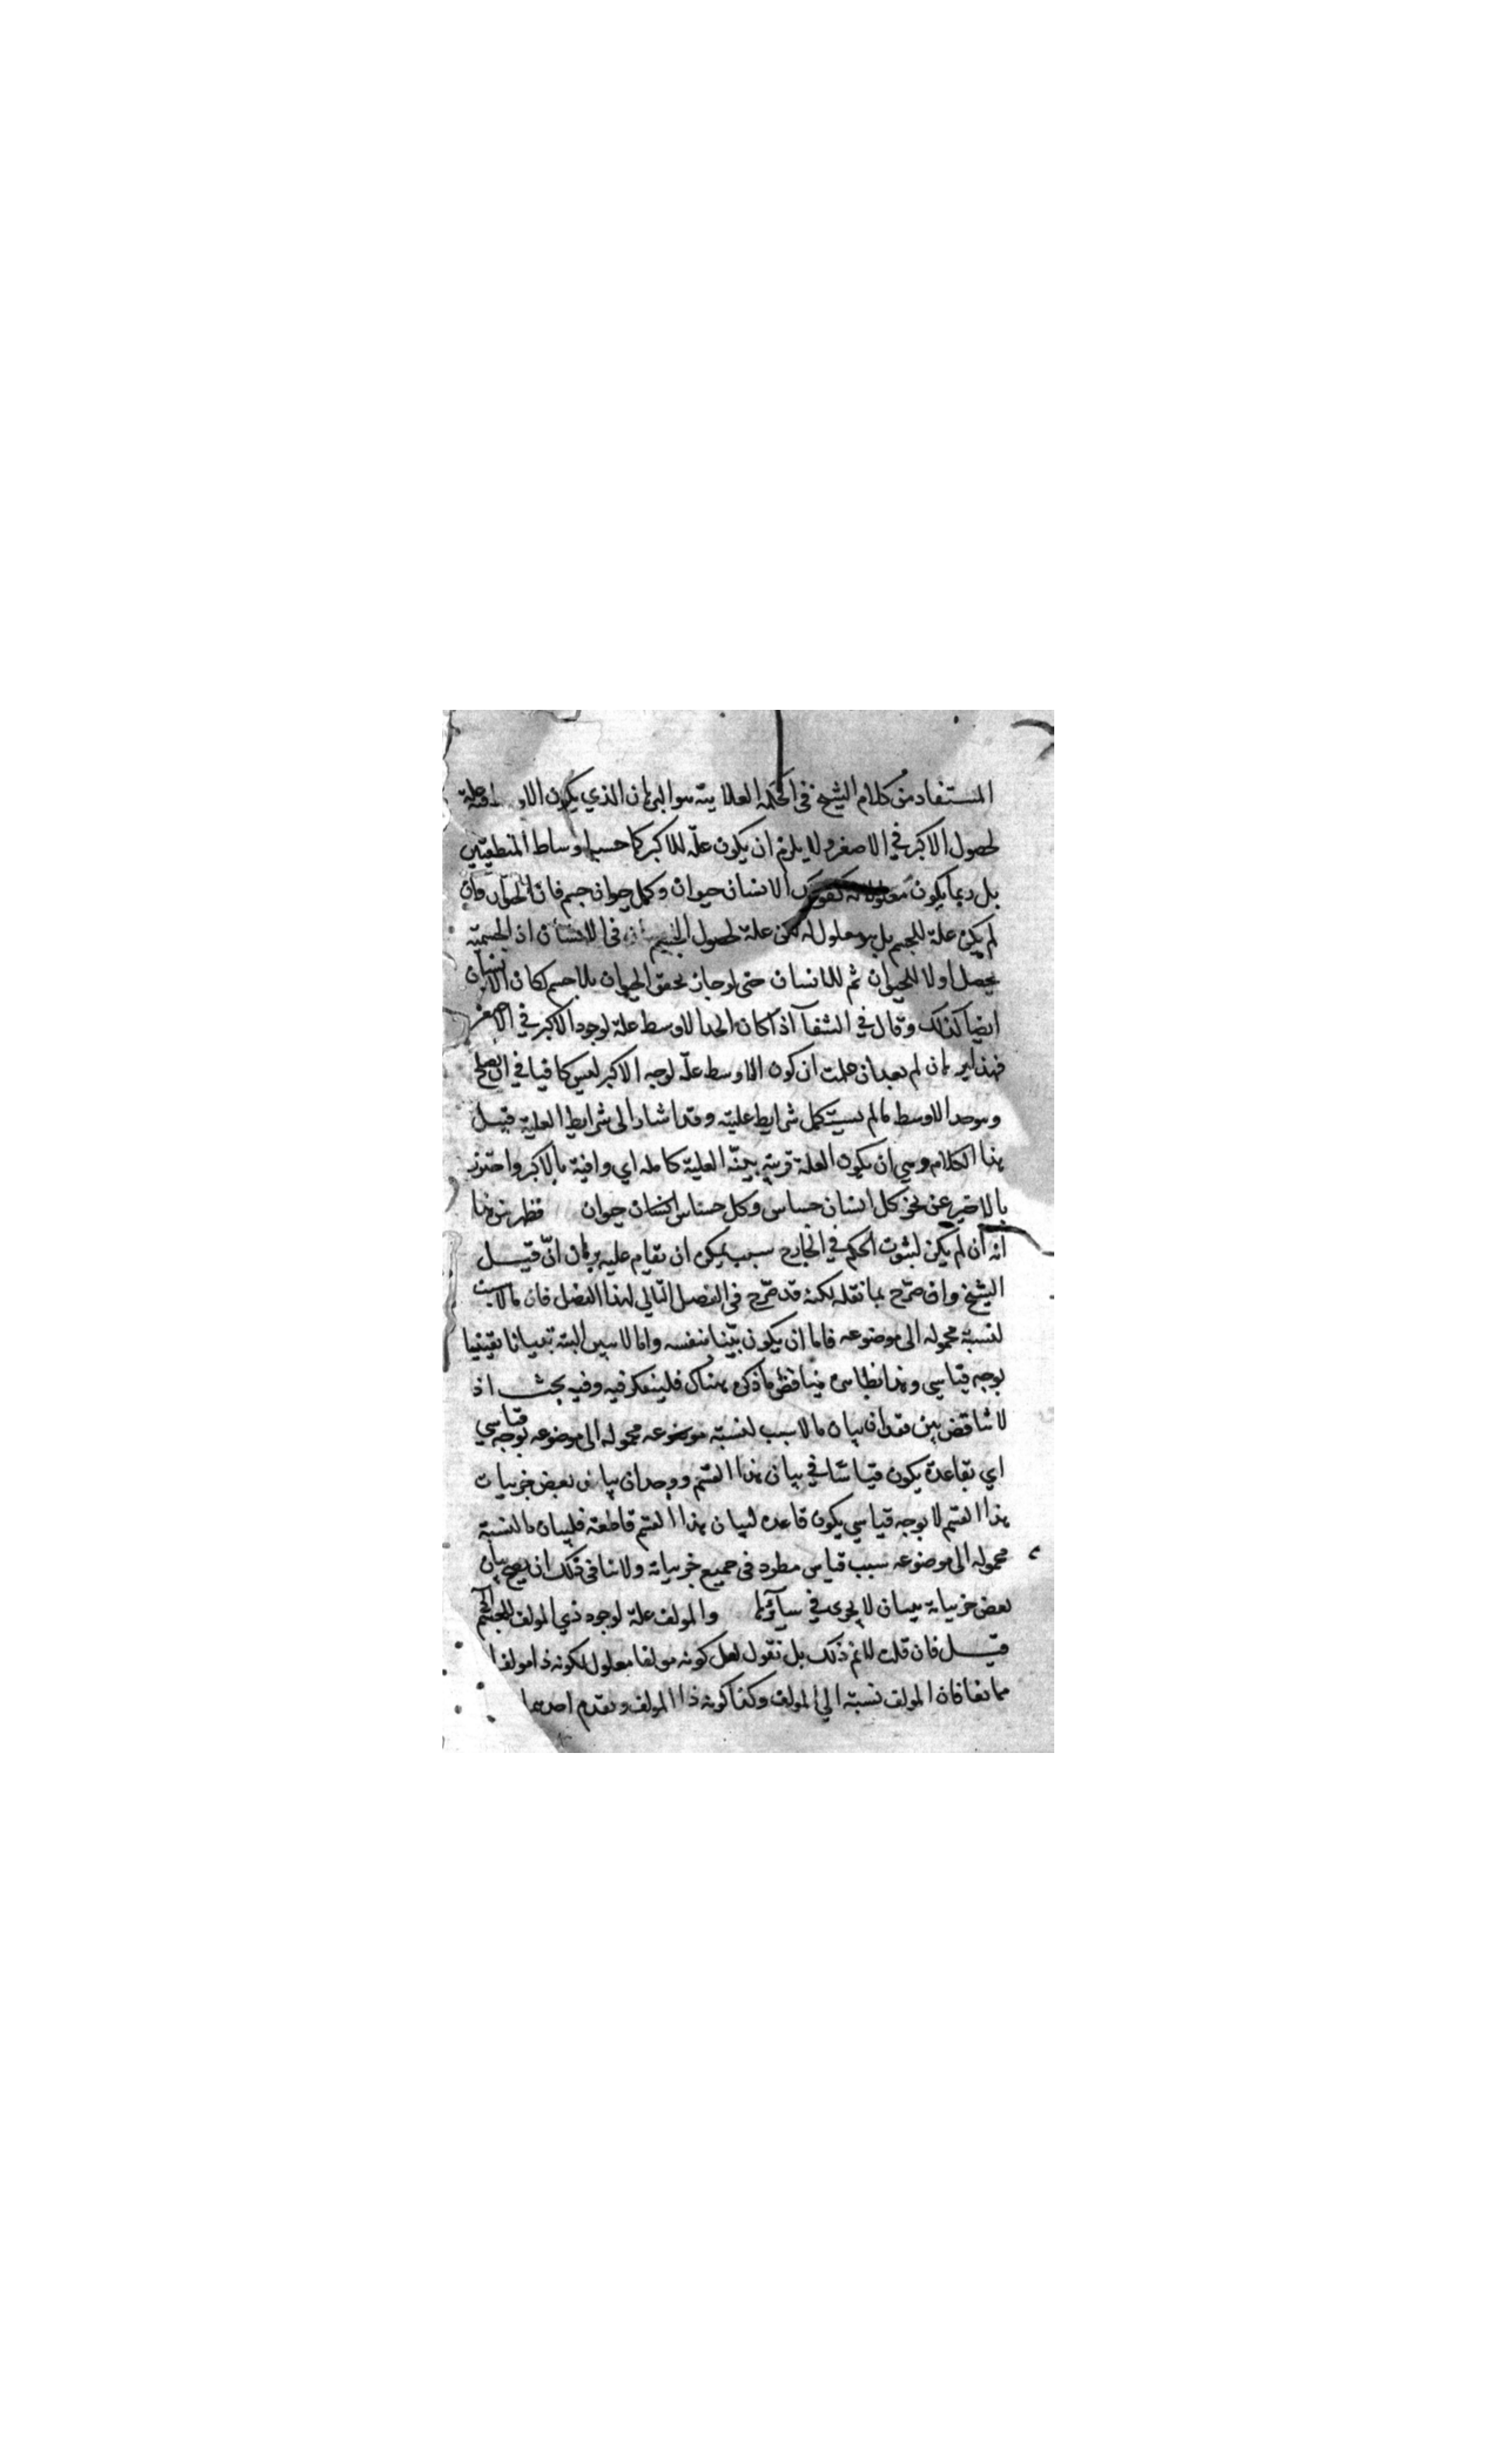 المستفاد من كلام الشيخ في الحكمة العلائية هو البرهان الذي يكون الاوسط فيه علة
لحصول الاكبر في الاصغر ولا يلزم ان يكون علّة للاكبر كما حسبه اوساط المنطقيّين
بل ربما يكون معلولا له كقولك الانسان حيوان وكل حيوان جسم فان الحيوان وان
لم يكن علة للجسم بل هو معلول له لكن علة لحصول الجسم في الانسان اذ الجسمية
يحصل اولا للحيوان ثم للانسان حتى لو جاز تحقق الحيوان بلا جسم لكان الانسان
ايضا كذلك وقال في الشفآ اذا كان الحد الاوسط علة لوجود الاكبر في الاصغر
فهذا برهان لم بعد ان علمت ان كون الاوسط علّة لوجه الاكبر ليس كافيا في ان يصلح
وسوحد الاوسط مالم يستكمل شرايط علية وقد اشار الى شرايط العلية قبيل
هذا الكلام وهي ان يكون العلة قريبة بيّنة العلية كاملة اي وافية بالاكبر واحترز
بالاخير عن نحو كل انسان حساس وكل حساس انسان حيوان فظهر من هذا
انه ان لم يكن لثبوت الحكم في الخارج سبب يمكن ان يقام عليه برهان انّ قيل
الشيخ وان صرّح بما نقله لكنه قد صرّح في الفصل التالي لهذا الفصل فان مالا سبب
لنسبة محموله الى موضوعه فاما ان يكون بيّنا بنفسه واما لا يبين البتة تبيانا يقينيا
بوجه قياسي وهذا بظاهره يناقض ما ذكره هناك فليتفكر فيه وفيه بحث اذ
لا تناقض بين فقدان بيان مالا سبب لنسبة موضوعه محموله الى موضوعه بوجه قياسي
اي بقاعدة يكون قياسا في بيان هذا القسم ووجدان بيان بعض جزييات
هذا القسم لا بوجه قياسي يكون قاعدة لبيان هذا القسم قاطعة فلبيان ما لنسبة
محموله الى موضوعه سبب قياس مطرد في جميع جزيياته ولا ينافي ذلك ان يصح بيان
بعض جزيياته ببيان لا يجري في سآئرها والمولف علة لوجود ذي المولف للجسم
قيل فان قلت لا نم ذلك بل نقول لعل كونه مولفا معلول لكونه ذا مولف
مما نعا فان المولف نسبة الى المولف وكذا كونه ذا المولف وتقدم احدهما